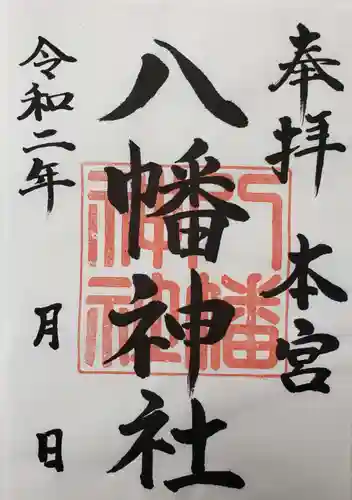 奉拝　本宮
八幡神社
八幡神社
令和二年　月　日